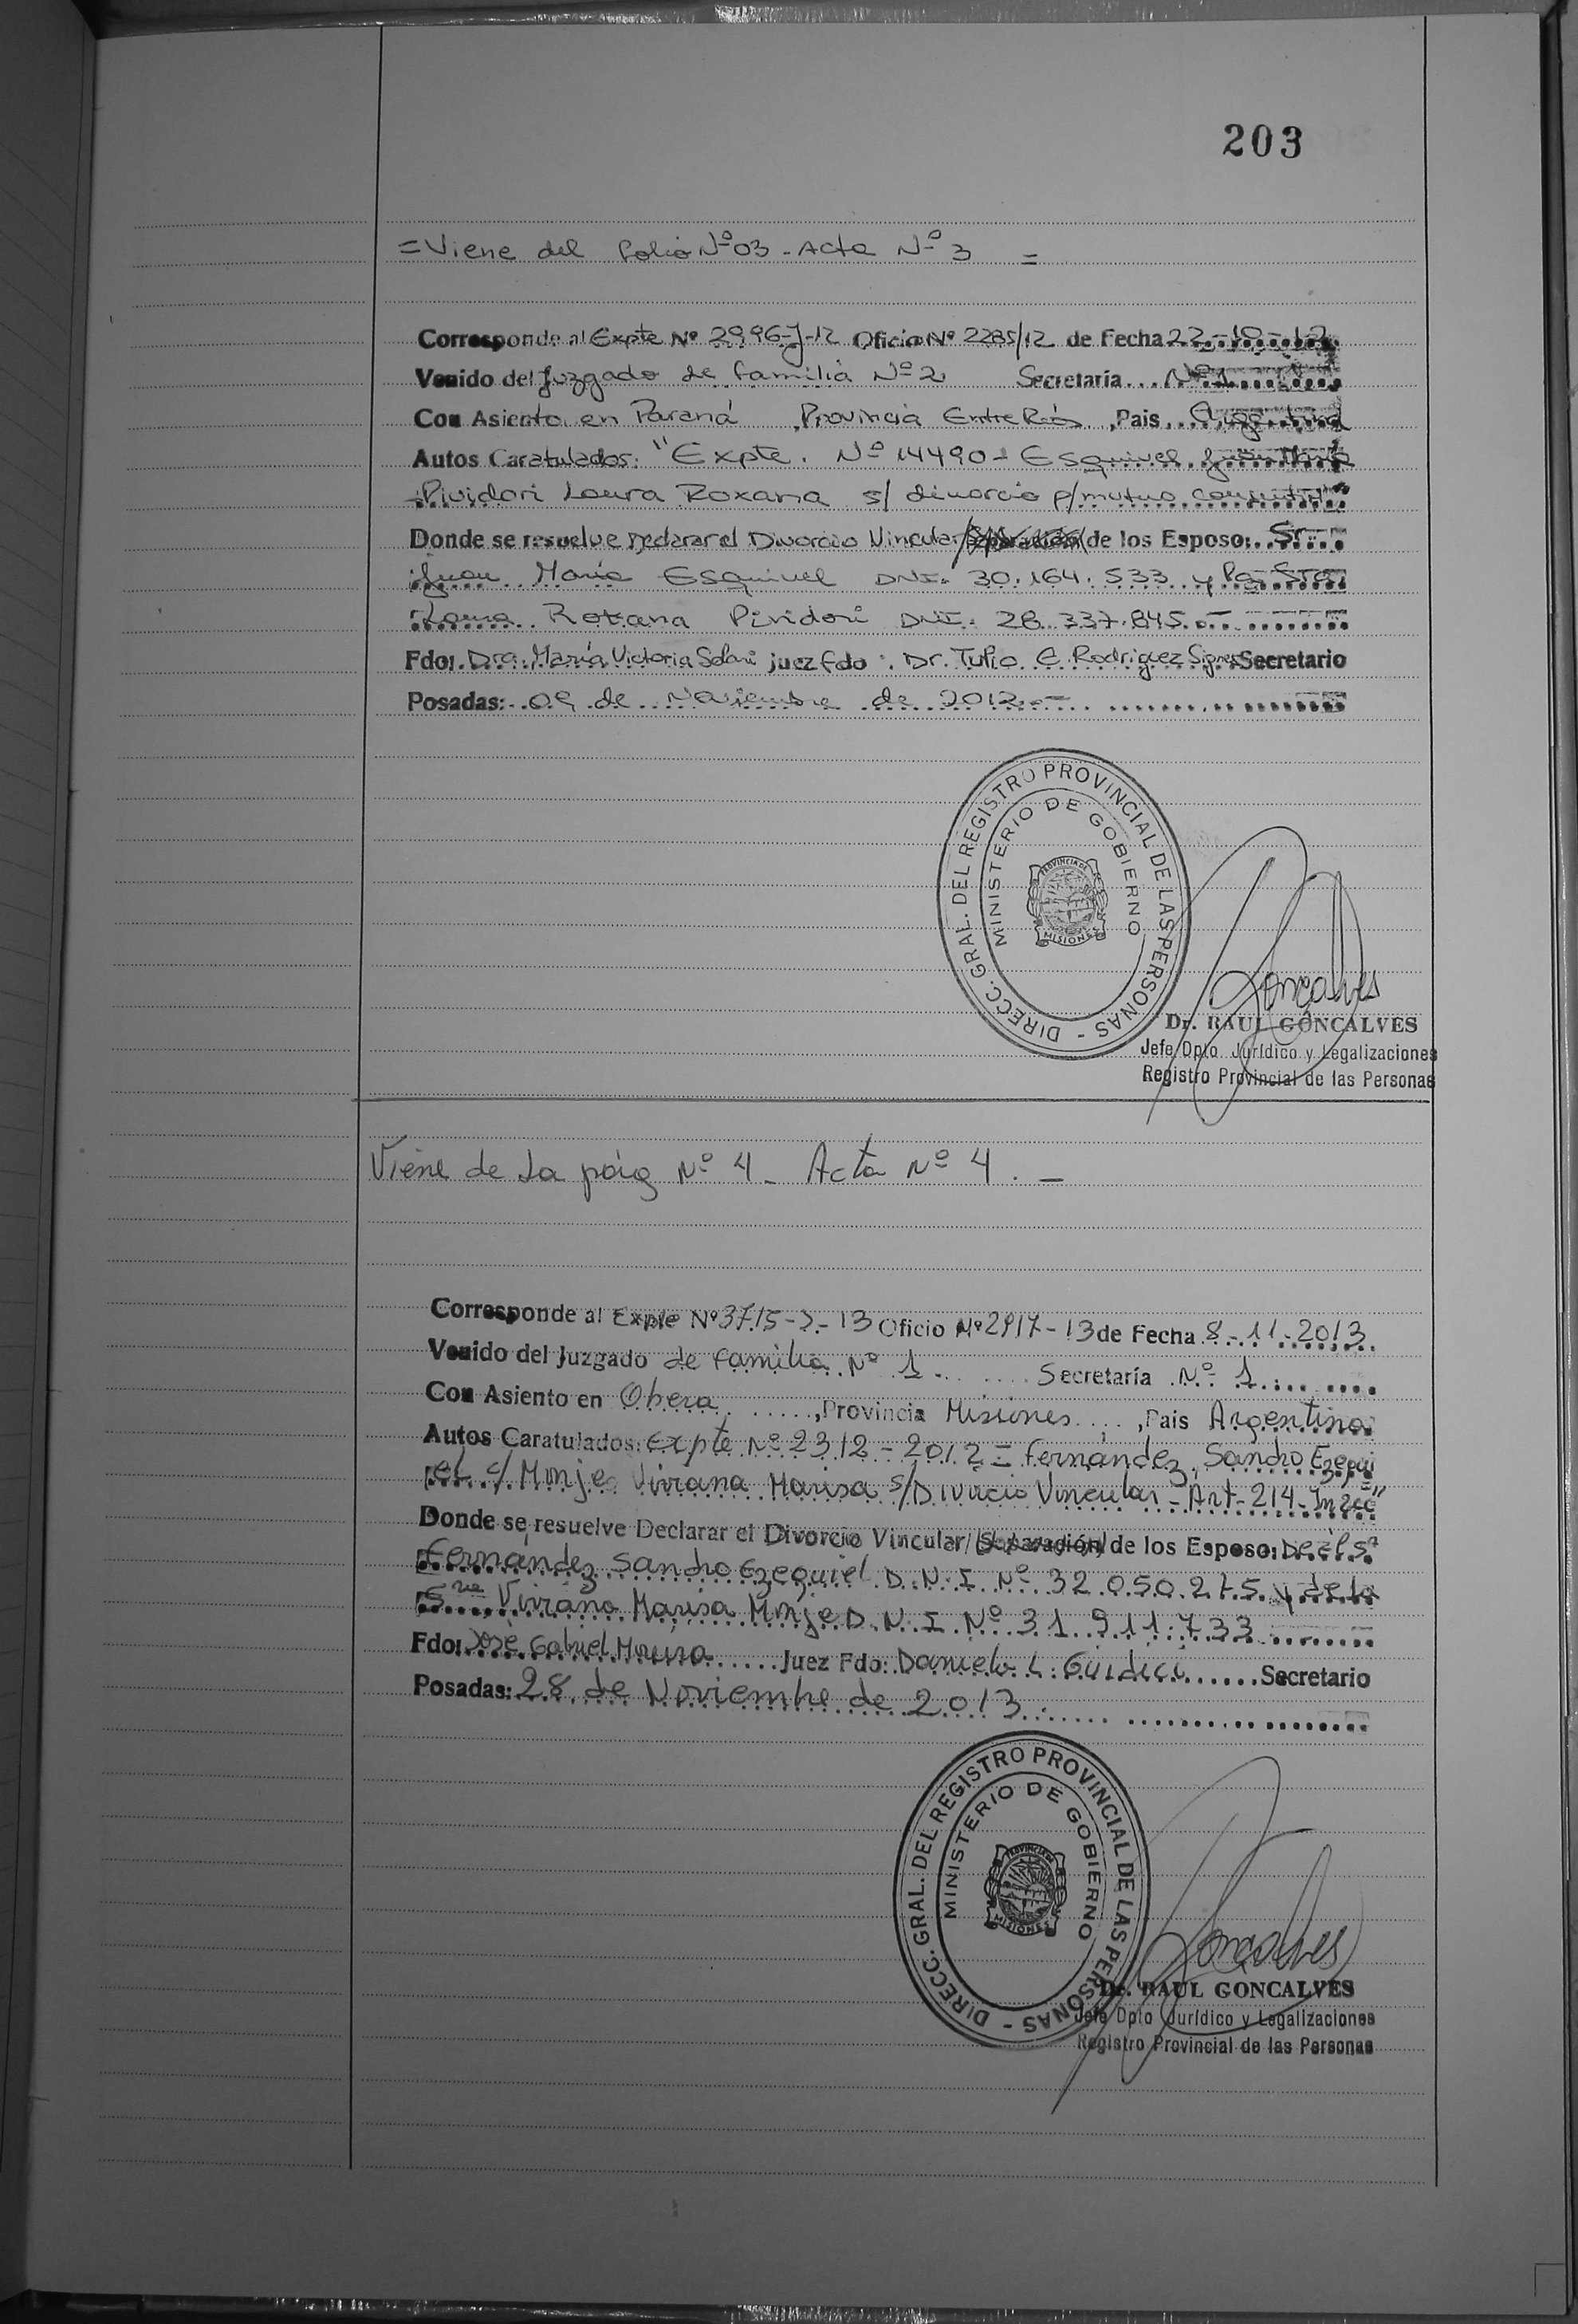 203
= Viene del folio Nº 03 - Acta Nº 3 =
Corresponde al Expte Nº 2996-J-12 Oficio Nº 2285/12 de Fecha 22-10-12
Venido del Juzgado de familia Nº 2 Secretaría Nº 1
Con Asiento en Paraná, Provincia Entre Ríos, Pais Argentina
Autos Caratulados: "Expte. Nº 14490 - Esquivel Juan María
Pividori Laura Roxana s/ divorcio p/mutuo
Donde se resuelve Declarar el Divorcio Vincular/Separación de los Esposo: Sr
Juan María Esquivel DNI. 30.164.533 y la Sra
Laura Roxana Pividori DNI. 28.337.845.-
Fdo: Dra. María Victoria Solari juez fdo: Dr. Tulio Rodriguez Secretario
Posadas: 09 de Noviembre de 2012.-
DIRECC. GRAL. DEL REGISTRO PROVINCIAL DE LAS PERSONAS -
MINISTERIO DE GOBIERNO
PROVINCIA DE
MISIONES
Goncalves
Dr. RAUL GONCALVES
Jefe Dpto Jurídico y Legalizaciones
Registro Provincial de las Personas
Viene de la pág Nº 4 - Acta Nº 4. -
Corresponde al Expte Nº 3715-J-13 Oficio Nº 2917-13 de Fecha 8-11-2013
Venido del Juzgado de familia Nº 1 Secretaría Nº 1
Con Asiento en Obera, Provincia Misiones, Pais Argentina
Autos Caratulados: Expte Nº 2312-2012 = Fernández, Sandro Ezequi
el c/ Monje Viviana Marisa s/Divorcio Vincular - Art-214-
Donde se resuelve Declarar el Divorcio Vincular/Separación de los Esposo:
Fernández Sandro Ezequiel D.N.I Nº 32.050.215 y de la
Sra Viviana Marisa Monje D.N.I Nº 31.911.733
Fdo: José Gabriel Juez Fdo: Daniela L. Secretario
Posadas: 28 de Noviembre de 2013
DIRECC. GRAL. DEL REGISTRO PROVINCIAL DE LAS PERSONAS -
MINISTERIO DE GOBIERNO
PROVINCIA DE
MISIONES
Goncalves
Dr. RAUL GONCALVES
Jefe Dpto Jurídico y Legalizaciones
Registro Provincial de las Personas